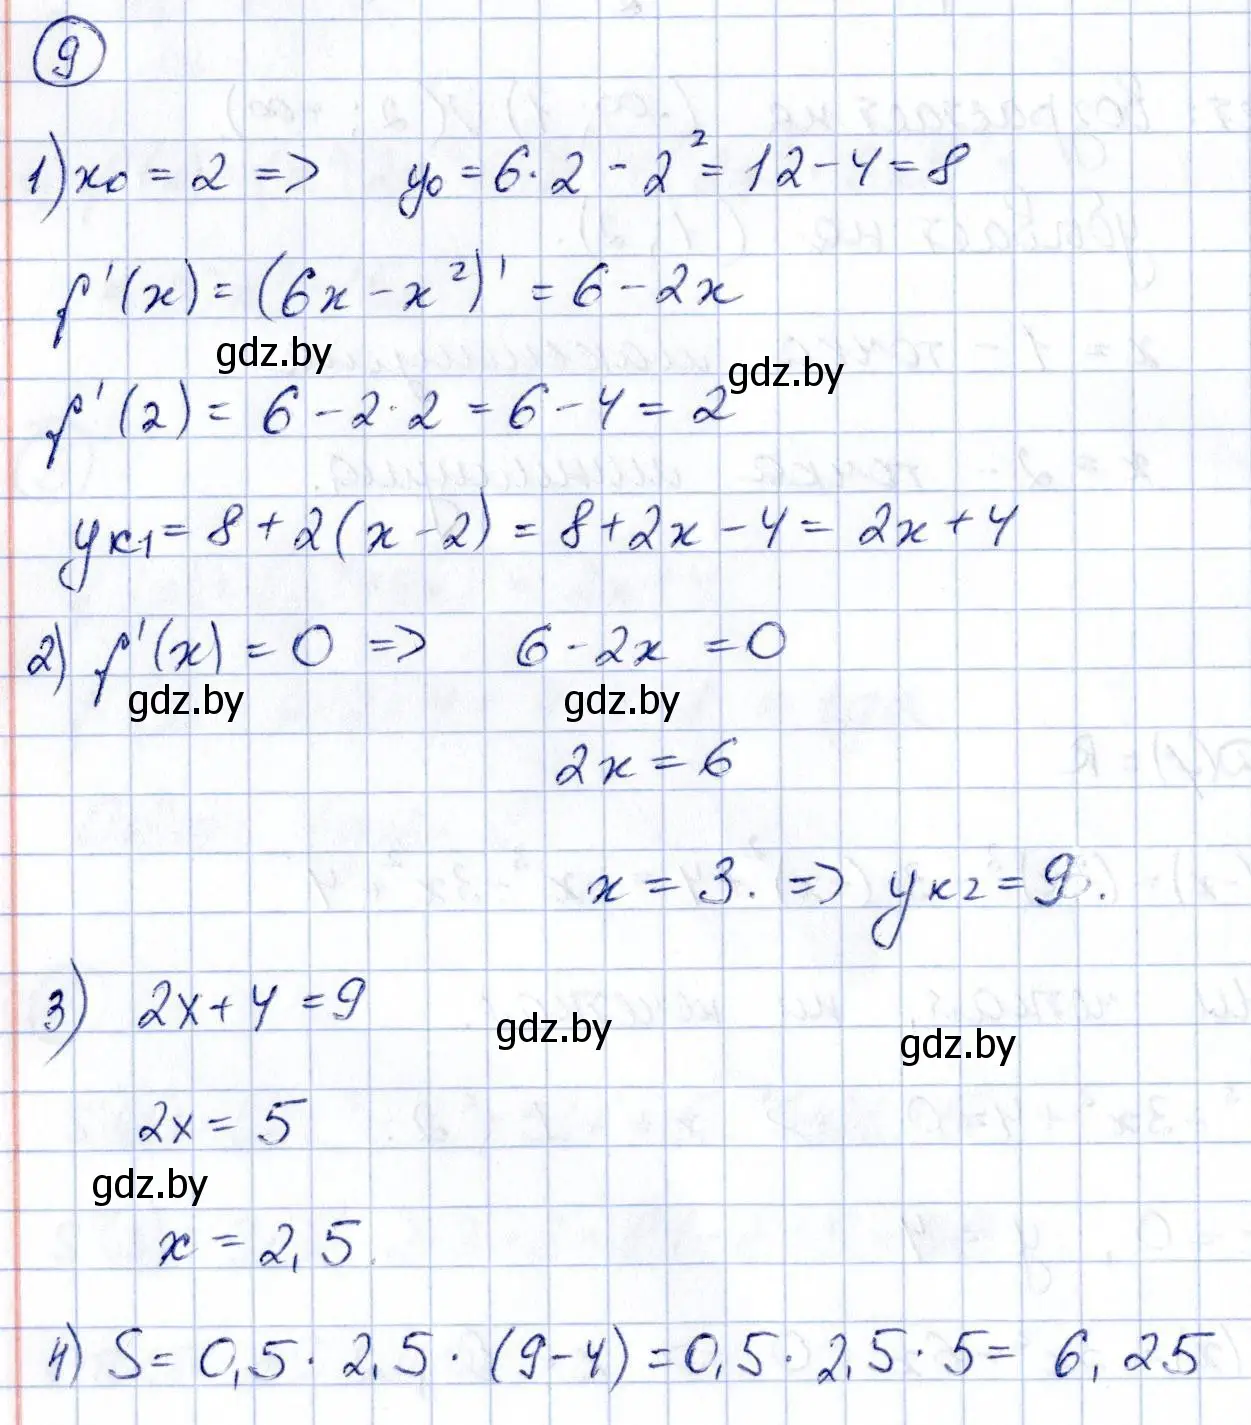 9
1) x₀ = 2 => y₀ = 6·2 - 2² = 12 - 4 = 8
f'(x) = (6x - x²)' = 6 - 2x
gdz.by
gdz.by
f'(2) = 6 - 2·2 = 6 - 4 = 2
yк1 = 8 + 2(x - 2) = 8 + 2x - 4 = 2x + 4
2) f'(x) = 0 => 6 - 2x = 0
gdz.by gdz.by
2x = 6
x = 3. => yк2 = 9.
3) 2x + 4 = 9
gdz.by gdz.by
2x = 5
gdz.by
x = 2,5.
4) S = 0,5 · 2,5 · (9 - 4) = 0,5 · 2,5 · 5 = 6,25